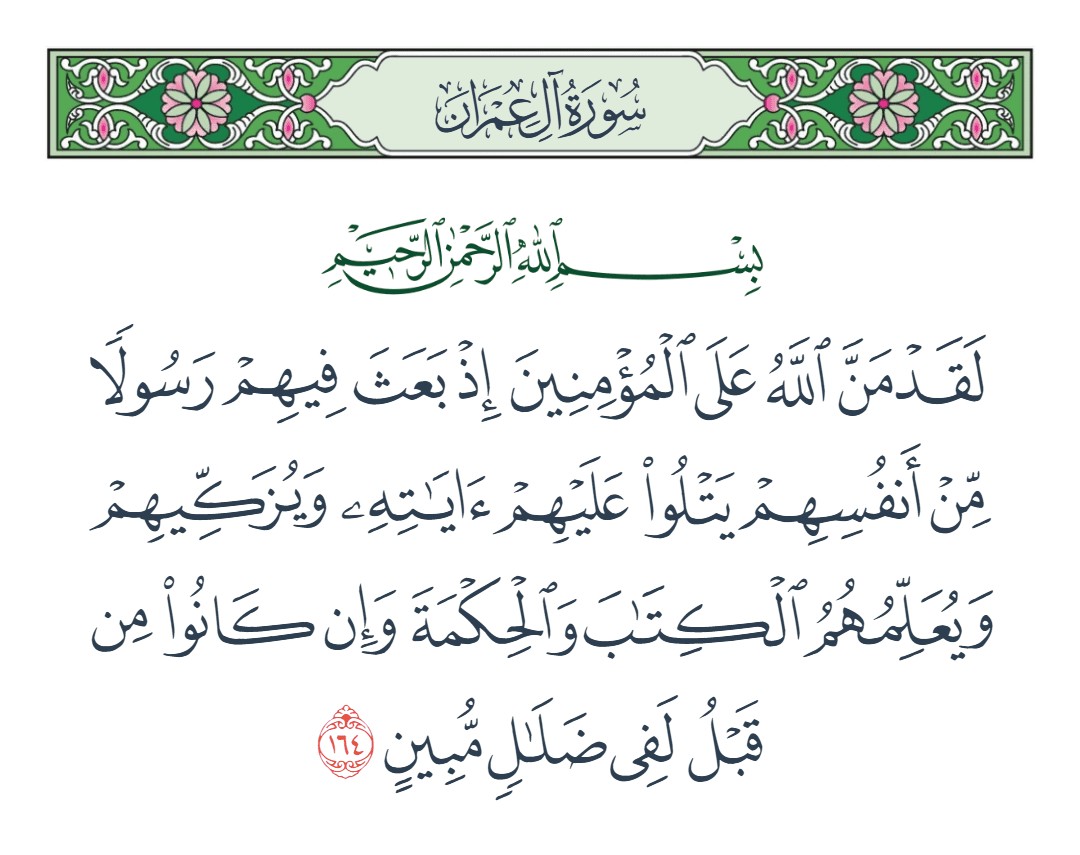 سُورَةُ آلِ عِمْرَانَ
بِسْمِ ٱللَّهِ ٱلرَّحْمَٰنِ ٱلرَّحِيمِ
لَقَدْ مَنَّ ٱللَّهُ عَلَى ٱلْمُؤْمِنِينَ إِذْ بَعَثَ فِيهِمْ رَسُولًا
مِّنْ أَنفُسِهِمْ يَتْلُوا۟ عَلَيْهِمْ ءَايَـٰتِهِۦ وَيُزَكِّيهِمْ
وَيُعَلِّمُهُمُ ٱلْكِتَـٰبَ وَٱلْحِكْمَةَ وَإِن كَانُوا۟ مِن
قَبْلُ لَفِى ضَلَـٰلٍ مُّبِينٍ ١٦٤